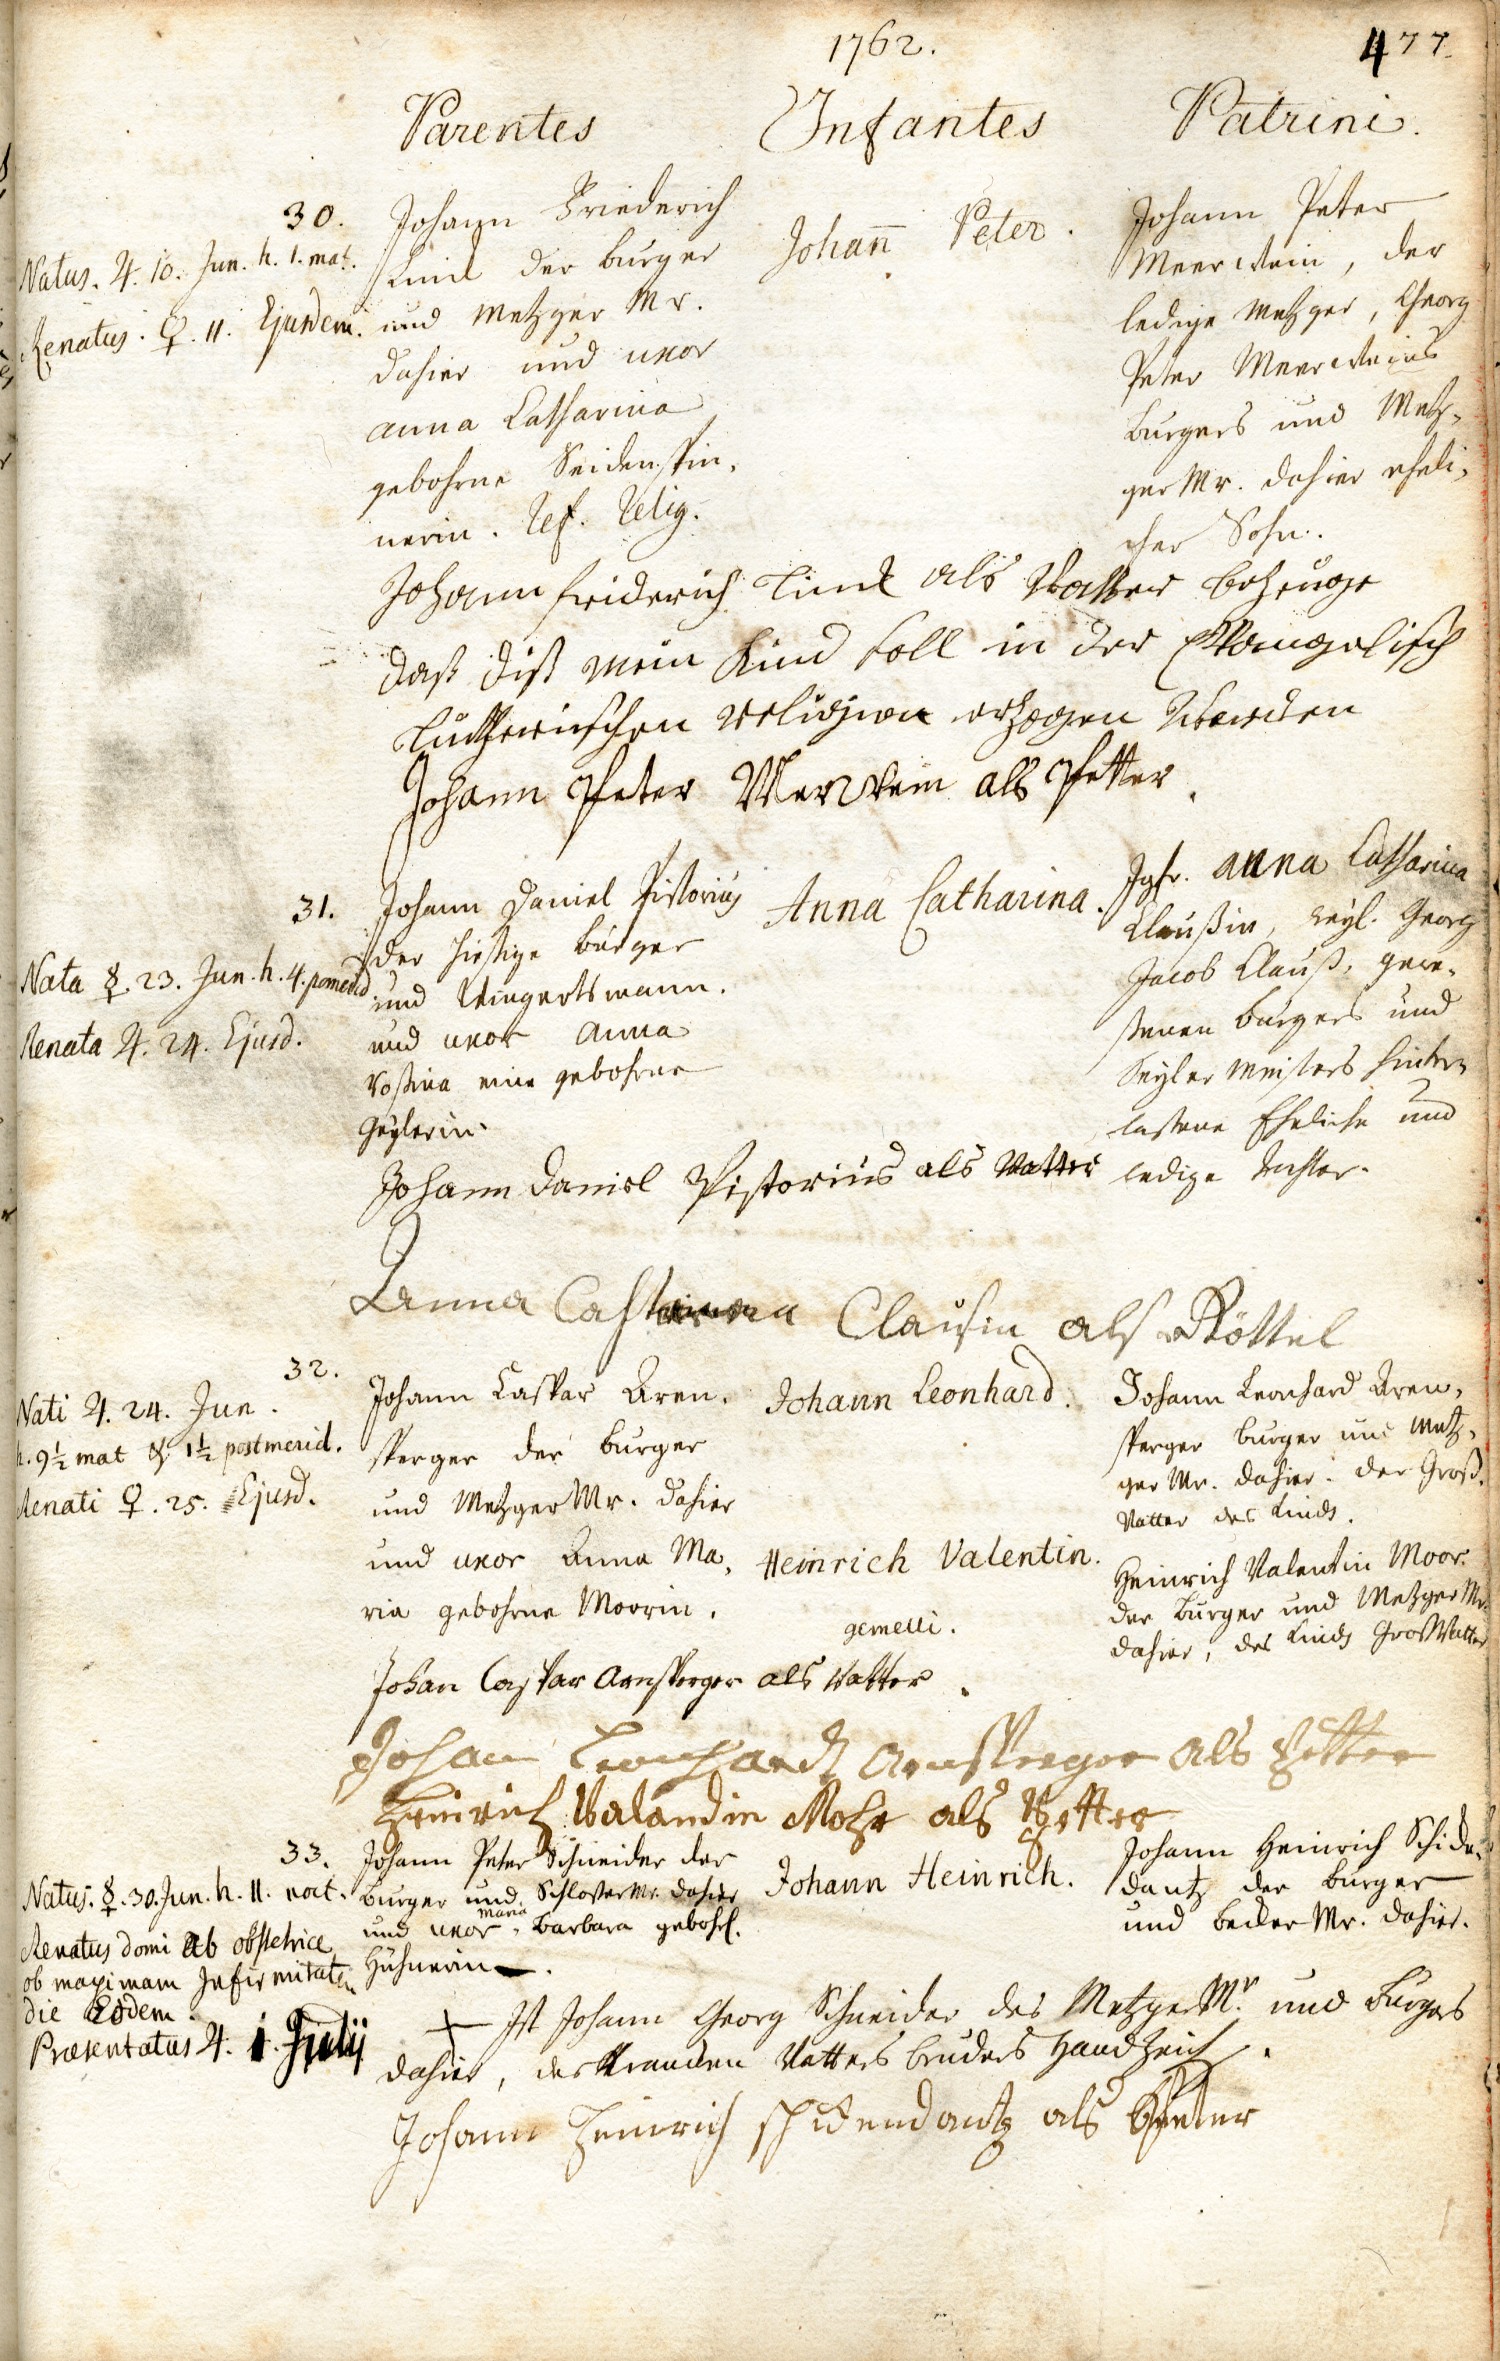 1762.
477.
Parentes
Infantes
Patrini.
30.
Natus. ♃. 10. Jun. h. 1. mat.
Renatus. ♀. 11. Ejusdem.
Johann Friederich
Linck der burger
und Metzger Mr.
dahier und uxor
anna Catharina
gebohrne Seidenspin-
nerin. Ref. Relig.
Johann̄ Peter.
Johann Peter
Meerwein, der
ledige Metzger, Georg
Peter Meerweins
burgers und Metz-
ger Mr. dahier eheli-
cher Sohn.
Johann friderich Linck als Vatter bezeuge
daß diß mein Kind soll in der Evangelisch
Lutherischen Religion erzogen werden
Johann Peter Merwein als Pfetter.
31.
Nata ☿. 23. Jun. h. 4. pomerid.
Renata ♃. 24. Ejusd.
Johann Daniel Pistorius
der hiesige burger
und Wingertsmann.
und uxor Anna
Rosina eine gebohrne
Geylerin.
Anna Catharina.
Jgfr. anna Catharina
Claußin, weyl. Georg
Jacob Clauß, gewe-
senen burgers und
Seyler Meisters hinter-
lassene Eheliche und
ledige Tochter.
Johann Daniel Pistorius als Vatter
Anna Clausin als Göttel
32.
Nati ♃. 24. Jun.
h. 9½ mat & 1½ postmerid.
Renati ♀. 25. Ejusd.
Johann Caspar Aren-
sperger der burger
und Metzger Mr. dahier
und uxor Anna Ma-
ria gebohrne Moorin.
Johann Leonhard.
Heinrich Valentin.
gemelli.
Johann Leonhard Aren-
sperger burger und Metz-
ger Mr. dahier. der Groß-
Vatter des Kinds.
Heinrich Valentin Moor.
der burger und Metzger Mr.
dahier, des Kinds GroßVatter
Johan Caspar Arnsperger als Vatter.
Johan Leonhardt Arnsperger als Petter
Heinrich Valandin Mohr als Petter
33.
Natus. ☿. 30. Jun. h. 11. noct.
Renatus domi ab obstetrice
ob maximam Infirmitatem
die Eodem.
Præsentatus ♃. 1. Julij
Johann Peter Schneider der
burger und SchlosserMr. dahier
und uxor Maria Barbara gebohr.
Huhnerin.
Johann Heinrich.
Johann Heinrich Schide-
dantz der burger
und becker Mr. dahier.
+ Ist Johann Georg Schneider des Metzger Mr. und burgers
dahier, des Krancken Vatters bruders Handzeich.
Johann Heinrich schidendantz als